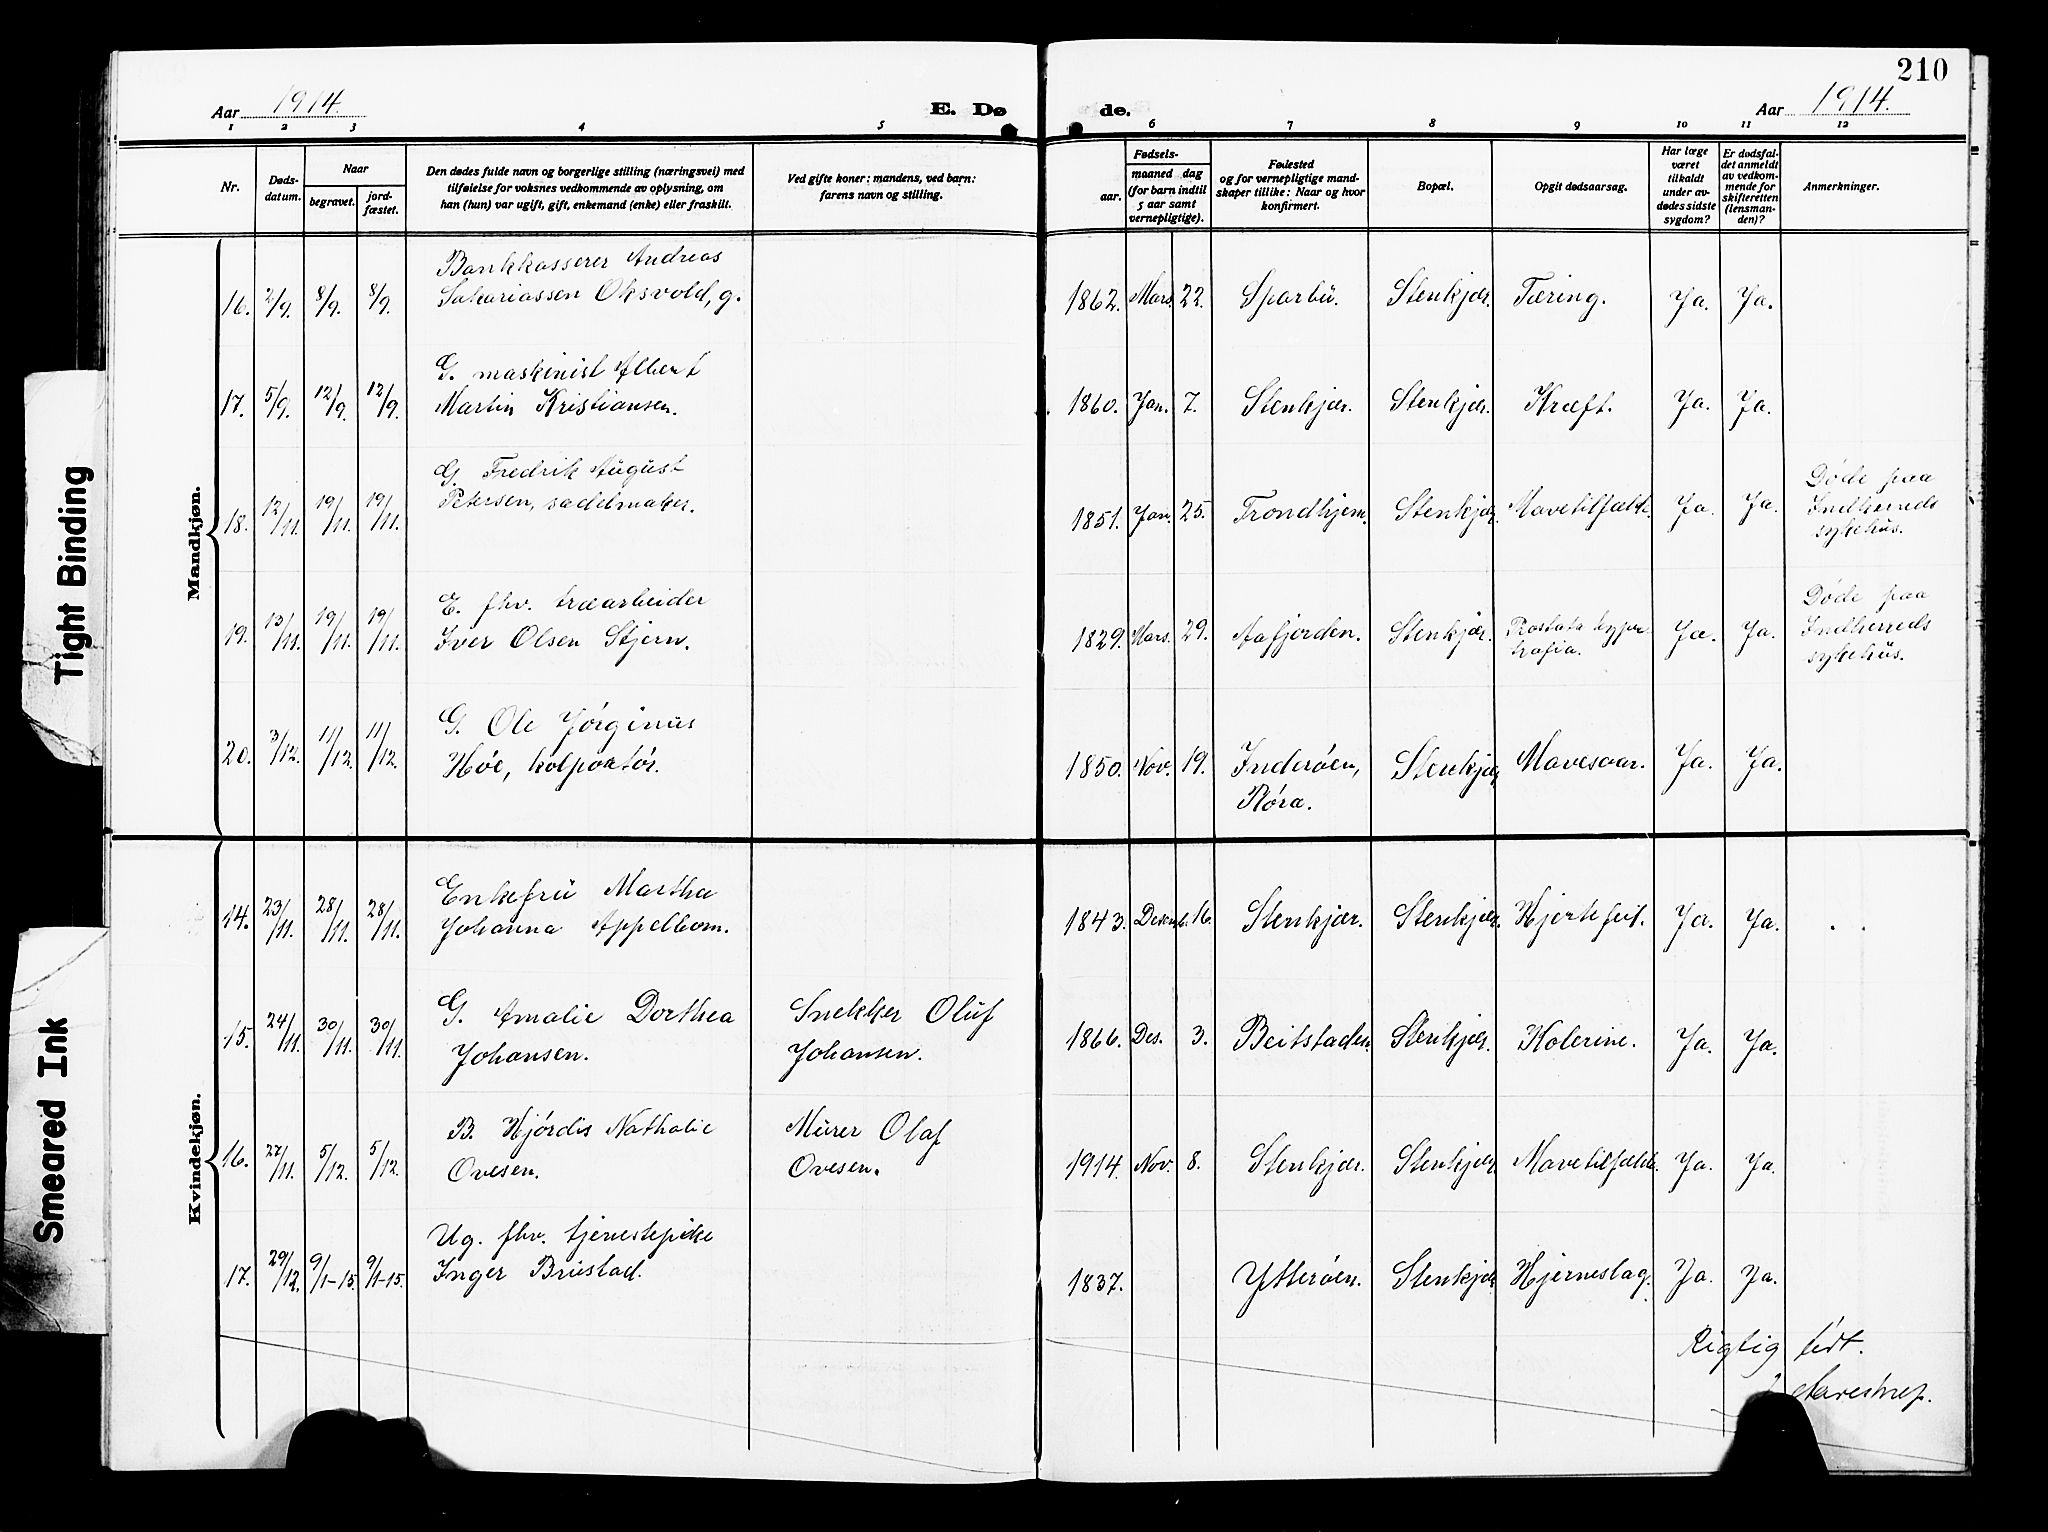 210
Aar 1914.
E. Dø de.
Aar 1914.
1 2 3 4 5 6 7 8 9 10 11 12
Nr.
Døds-
datum.
Naar
begravet.
jord-
fæstet.
Den dødes fulde navn og borgerlige stilling (næringsvei) med
tilføielse for voksnes vedkommende av oplysning, om
han (hun) var ugift, gift, enkemand (enke) eller fraskilt.
Ved gifte koner: mandens, ved barn:
farens navn og stilling.
Fødsels-
aar.
maaned dag
(for barn indtil
5 aar samt
vernepligtige).
Fødested
og for vernepligtige mand-
skaper tillike: Naar og hvor
konfirmert.
Bopæl.
Opgit dødsaarsag.
Har læge
været
tilkaldt
under av-
dødes sidste
sygdom?
Er dødsfal-
det anmeldt
av vedkom-
mende for
skifteretten
(lensman-
den)?
Anmerkninger.
Mandkjøn.
Bankkasserer Andreas
16. 2/9. 8/9. 8/9. Sakariassen Oksvold, g. 1862. Mars. 22. Sparbu. Stenkjær. Tæring. Ja. Ja.
G. maskinist Albert
17. 5/9. 12/9. 12/9. Martin Kristiansen. 1860. Jan. 7. Stenkjær. Stenkjær. Kræft. Ja. Ja.
G. Fredrik August
18. 12/11. 19/11. 19/11. Petersen, sadelmaker. 1851. Jan. 25. Trondhjem. Stenkjær. Mavetilfælde. Ja. Ja. Døde paa
Indherreds
sykehus.
E. fhv. træarbeider
19. 13/11. 19/11. 19/11. Iver Olsen Stjern. 1829. Mars. 29. Aafjorden. Stenkjær. Prostata hyper-
trofia. Ja. Ja. Døde paa
Indherreds
sykehus.
G. Ole Jørginus
20. 3/12. 11/12. 11/12. Høe, kolportør. 1850. Nov. 19. Inderøen,
Røra. Stenkjær. Mavesaar. Ja. Ja.
Kvindekjøn.
Enkefru Martha
14. 23/11. 28/11. 28/11. Johanna Appelbom. 1843. Desemb. 16. Stenkjær. Stenkjær. Hjertefeil. Ja. Ja.
G. Amalie Dorthea Snekker Oluf
15. 24/11. 30/11. 30/11. Johansen. Johansen. 1866. Des. 3. Beitstaden. Stenkjær. Kolerine. Ja. Ja.
B. Hjørdis Nathalie Murer Olaf
16. 27/11. 5/12. 5/12. Ovesen. Ovesen. 1914. Nov. 8. Stenkjær. Stenkjær. Mavetilfælde. Ja. Ja.
Ug. fhv. tjenestepike
17. 29/12. 9/1-15. 9/1-15. Inger Brustad. 1837. Ytterøen. Stenkjær. Hjerneslag. Ja. Ja.
Rigtig ført.
Aarestrup.
Tight Binding
Smeared Ink